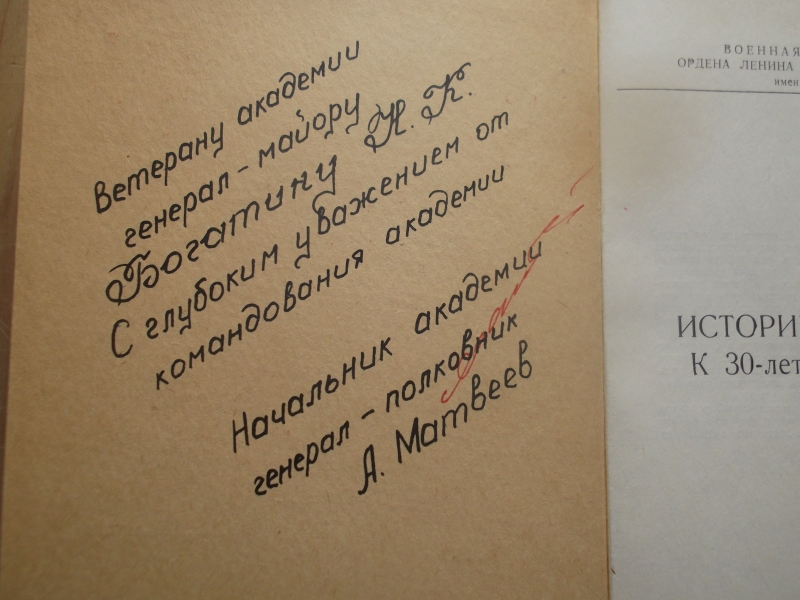 Ветерану академии
генерал-майору
Богатину Н. К.
С глубоким уважением от
командования академии
Начальник академии
генерал-полковник
А. Матвеев
ВОЕННАЯ
ОРДЕНА ЛЕНИНА
имен
ИСТОРИ
К 30-лет